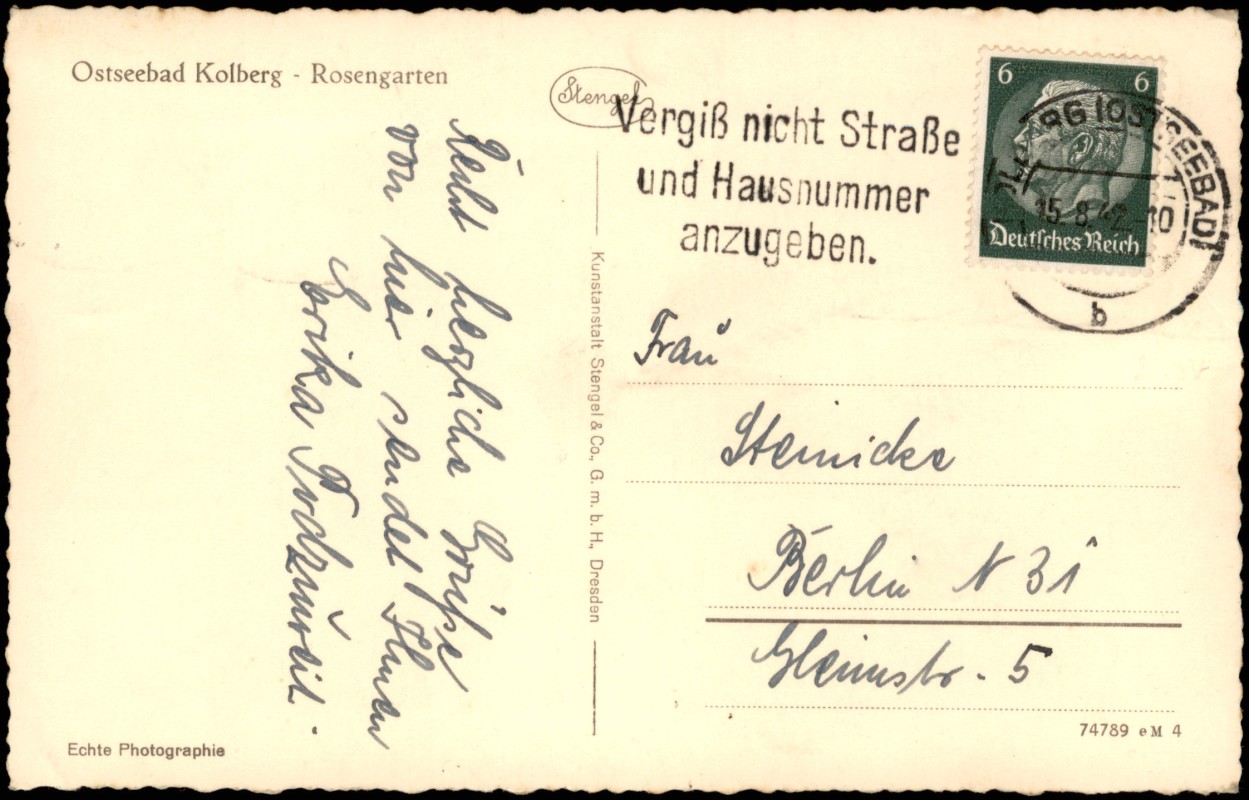 Ostseebad Kolberg - Rosengarten
Stengel
Vergiß nicht Straße
und Hausnummer
anzugeben.
6 6
Deutsches Reich
RG (OSTSEEBAD)
15.8.42-10
b
Recht herzliche Grüße
von hier sendet Ihnen
Erika
Kunstanstalt Stengel & Co., G. m. b. H., Dresden
Frau
Steinicke
Berlin N 31
Gleimstr. 5
Echte Photographie
74789 eM 4